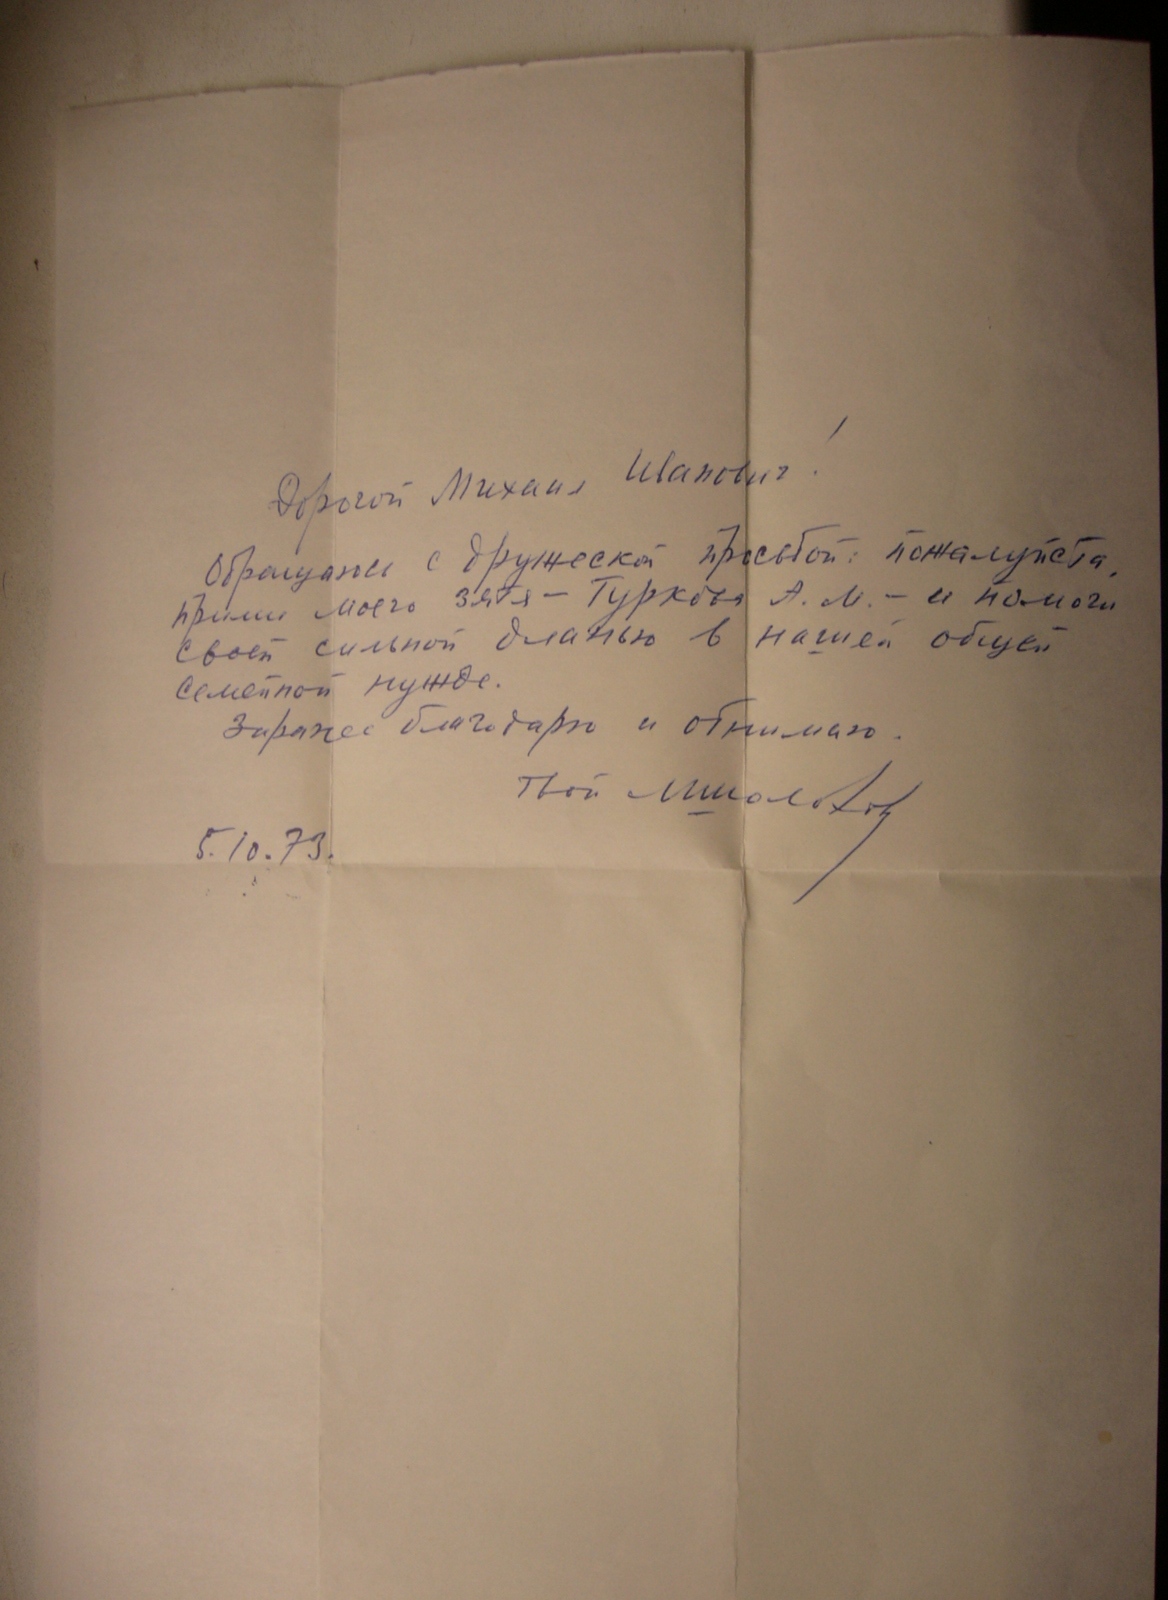 Дорогой Михаил Иванович!
Обращаюсь с дружеской просьбой: пожалуйста,
прими моего зятя – Туркова А. М. – и помоги
своей сильной дланью в нашей общей
семейной нужде.
Заранее благодарю и обнимаю.
Твой М. Шолохов
5.10.73.